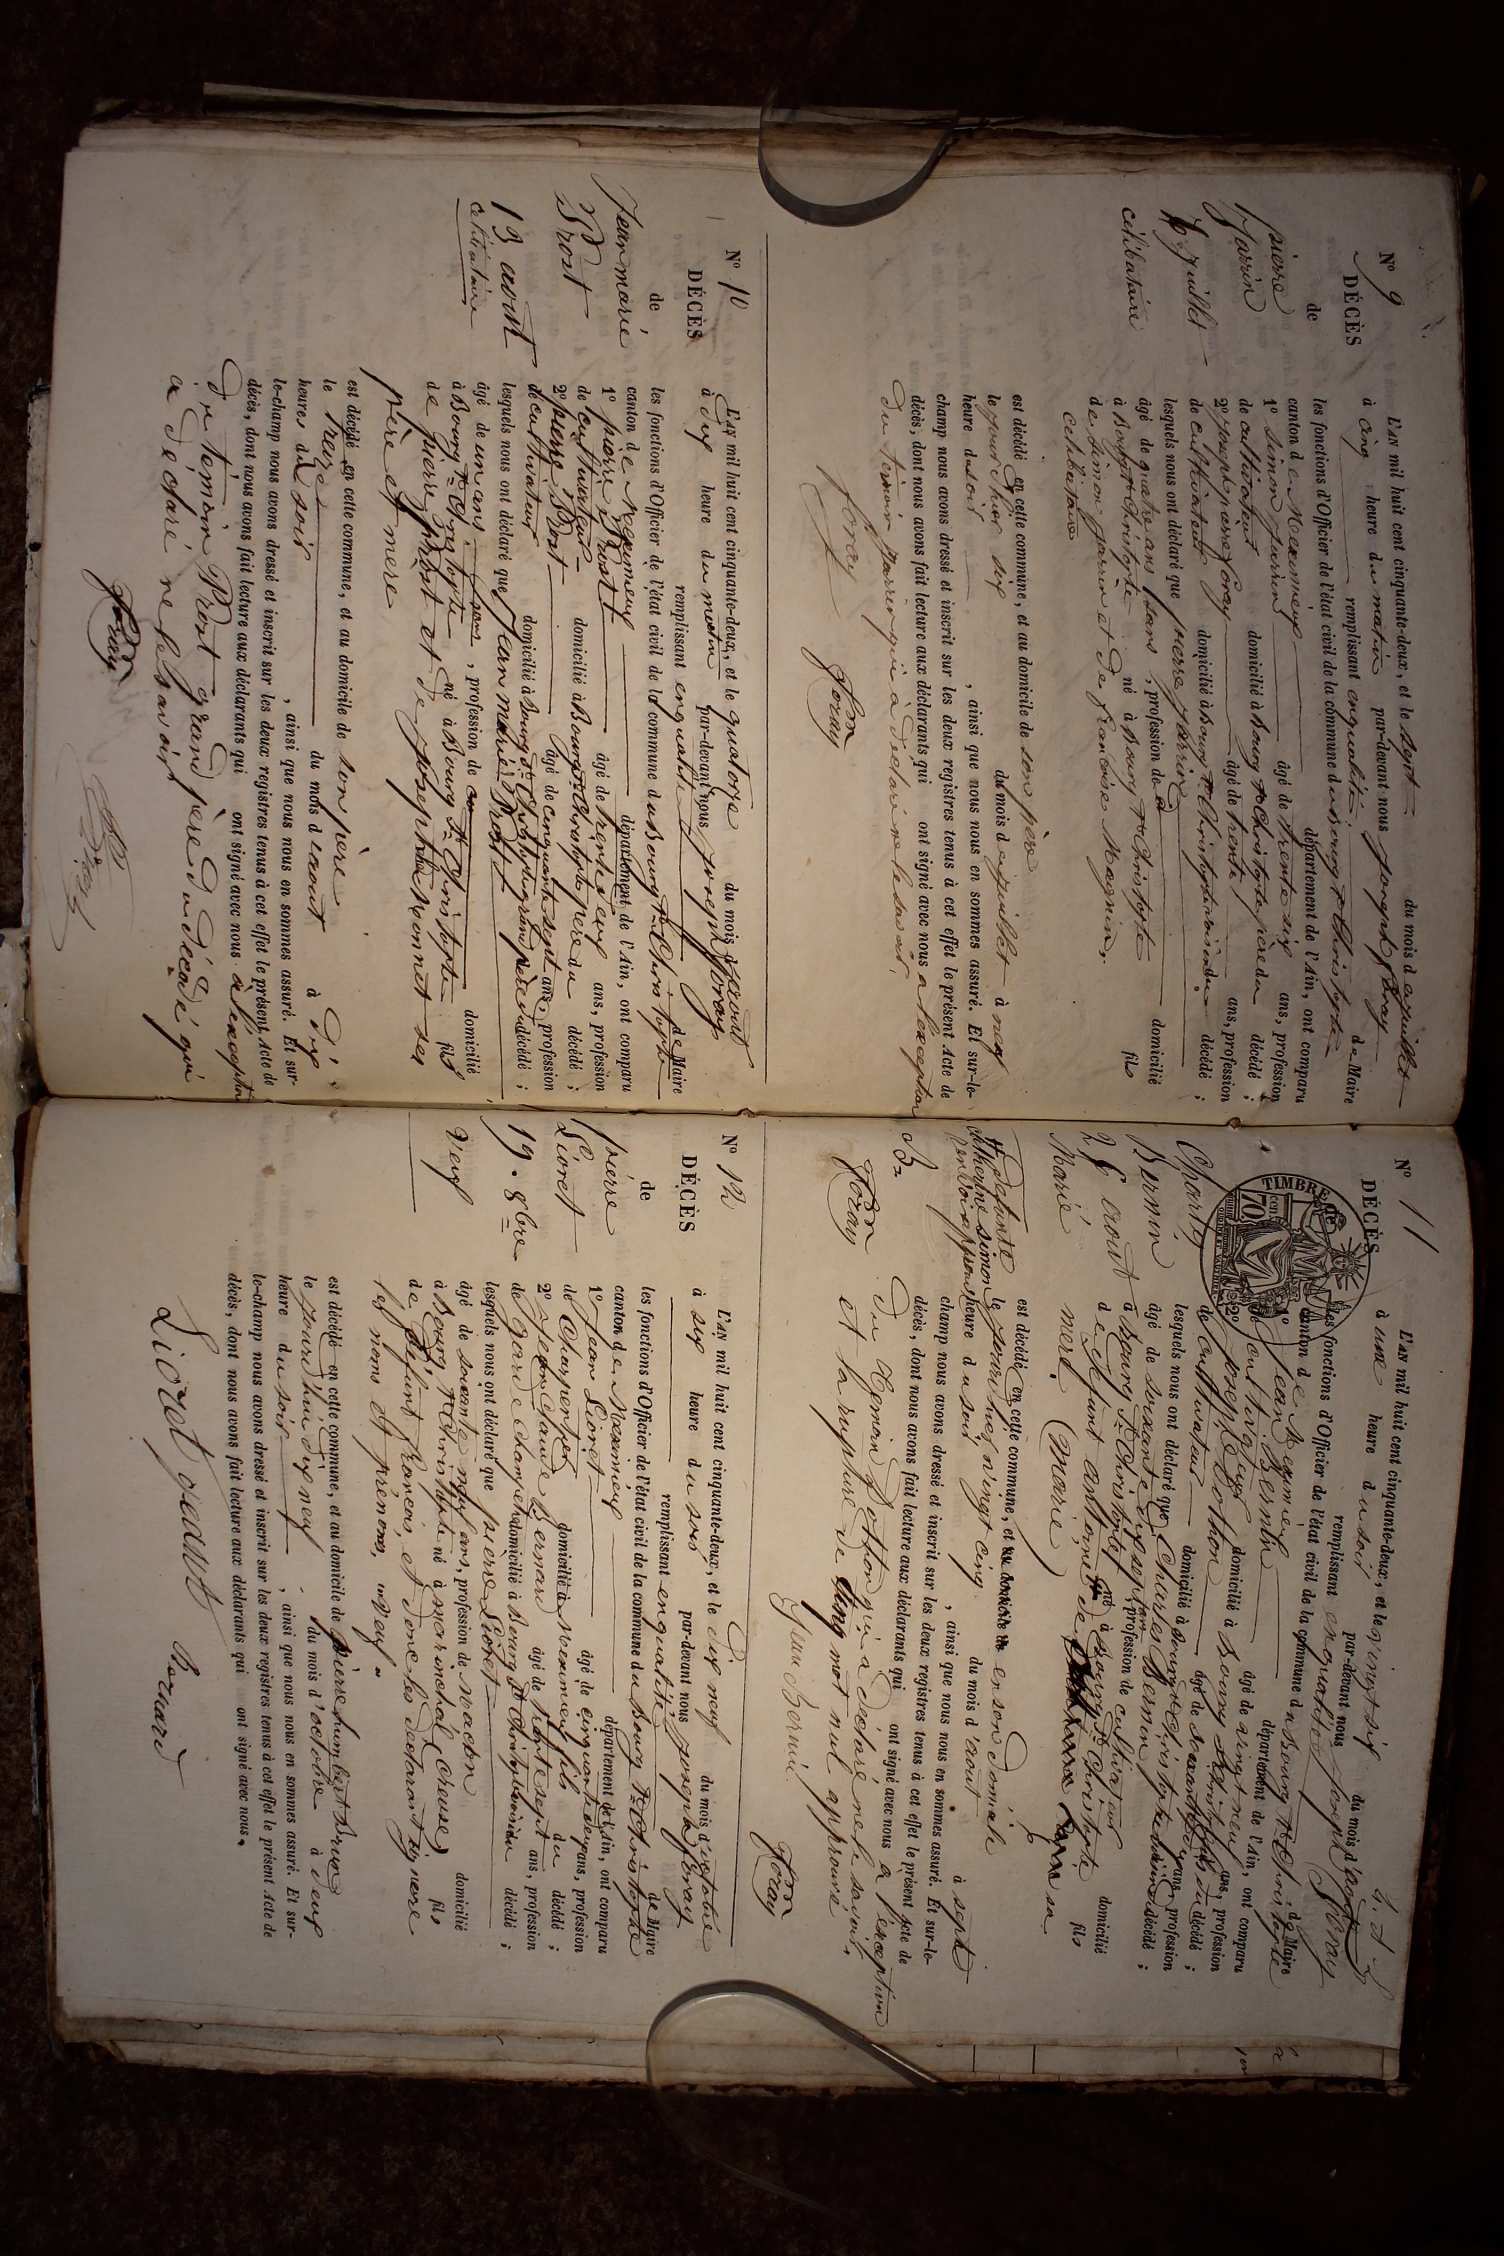 N° 9
DÉCÈS
de
pierre
Jarrin
6 juillet
célibataire
L'AN mil huit cent cinquante-deux, et le sept du mois de juillet
à cinq heure du matin par-devant nous joseph foray
remplissant en qualité de Maire
les fonctions d'Officier de l'état civil de la commune du Bourg St Christophe
canton de Meximieux département de l'Ain, ont comparu
1° simon jarrin âgé de trente six ans, profession
de cultivateur domicilié à Bourg St Christophe père du décédé ;
2° joseph pierre foray âgé de trente ans, profession
de cultivateur domicilié à Bourg St Christophe voisin du décédé ;
lesquels nous ont déclaré que pierre jarrin
âgé de quatre ans, sans, profession de domicilié
à Bourg St Christophe né à Bourg St Christophe fils
de simon jarrin et de francoise Magnin,
celibataire
est décédé en cette commune, et au domicile de son père
le jour d'hier six du mois de juillet à neuf
heure du soir, ainsi que nous nous en sommes assuré. Et sur-le-
champ nous avons dressé et inscrit sur les deux registres tenus à cet effet le présent Acte de
décès, dont nous avons fait lecture aux déclarants qui ont signé avec nous a l'exception
du témoin jarrin qui à déclaré ne le savoir,
foray foray
N° 10
DÉCÈS
de
Jean marie
Prost
13 aout
célibataire
L'AN mil huit cent cinquante-deux, et le quatorze du mois d'aout
à dix heure du matin par-devant nous joseph foray
remplissant en qualité de Maire
les fonctions d'Officier de l'état civil de la commune du Bourg St Christophe
canton de Meximieux département de l'Ain, ont comparu
1° pierre Prost âgé de trente deux ans, profession
de cultivateur domicilié à Bourg St Christophe père du décédé ;
2° pierre Prost âgé de cinquante sept ans, profession
de cultivateur domicilié à Bourg St Christophe grand père du décédé ;
lesquels nous ont déclaré que Jean marie Prost
âgé de un ans, sans, profession de domicilié
à Bourg St Christophe né à Bourg St Christophe fils
de pierre prost et de josephte Monnet ses
père et mere
est décédé en cette commune, et au domicile de son père
le treize du mois d'aout à dix
heure du soir, ainsi que nous nous en sommes assuré. Et sur-
le-champ nous avons dressé et inscrit sur les deux registres tenus à cet effet le présent Acte de
décès, dont nous avons fait lecture aux déclarants qui ont signé avec nous à l'exception
du témoin Prost grand père du décédé qui
a déclaré ne le savoir
foray
N° 11
DÉCÈS
de
TIMBRE
70 CENT
Charles
Bernin
25 aout
Marié
L'AN mil huit cent cinquante-deux, et le vingt six du mois d'aout
à une heure du soir par-devant nous joseph foray
remplissant en qualité de Maire
les fonctions d'Officier de l'état civil de la commune du Bourg St Christophe
canton de Meximieux département de l'Ain, ont comparu
1° jean Bernin âgé de vingt neuf ans, profession
de cultivateur domicilié à Bourg St Christophe fils du décédé ;
2° joseph Dothon âgé de ans, profession
de cultivateur domicilié à Bourg St Christophe décédé ;
lesquels nous ont déclaré que Charles Bernin
âgé de soixante dix sept ans, profession de cultivateur domicilié
à Bourg St Christophe né à Bourg St Christophe fils
de defunt antoine de sa
mere. (Marié)
est décédé en cette commune, et au domicile de en son domicile
le jour d'hier vingt cinq du mois d'aout à sept
heure du soir, ainsi que nous nous en sommes assuré. Et sur-le-
champ nous avons dressé et inscrit sur les deux registres tenus à cet effet le présent Acte de
décès, dont nous avons fait lecture aux déclarants qui ont signé avec nous à l'exception
du témoin Dothon qui a déclaré ne le savoir,
et la rupture de cinq mot nul approuvé
# defunte
catherine simon
Renvoi approuvé
foray Jean Bernin foray
N° 12
DÉCÈS
de
pierre
Lioret
19. 8bre
Veuf
L'AN mil huit cent cinquante-deux, et le dix neuf du mois d'octobre
à six heure du soir par-devant nous joseph foray
remplissant en qualité de Maire
les fonctions d'Officier de l'état civil de la commune du Bourg St Christophe
canton de Meximieux département de l'Ain, ont comparu
1° jean Lioret âgé de cinquante ans, profession
de Charpentier domicilié à Meximieux fils du décédé ;
2° jean Claude Bernard âgé de trente sept ans, profession
de garde champetre domicilié à Bourg St Christophe voisin du décédé ;
lesquels nous ont déclaré que pierre Lioret
âgé de ans, profession de macon domicilié
à Bourg St Christophe né à (creuse) fils
de defunt francois, et donc les declarant ignore
les noms et prénoms, veuf.
est décédé en cette commune, et au domicile de pierre humbert Brun
le jourd'hui dix neuf du mois d'octobre à deux
heure du soir, ainsi que nous nous en sommes assuré. Et sur-
le-champ nous avons dressé et inscrit sur les deux registres tenus à cet effet le présent Acte de
décès, dont nous avons fait lecture aux déclarants qui ont signé avec nous.
Lioret Bernard